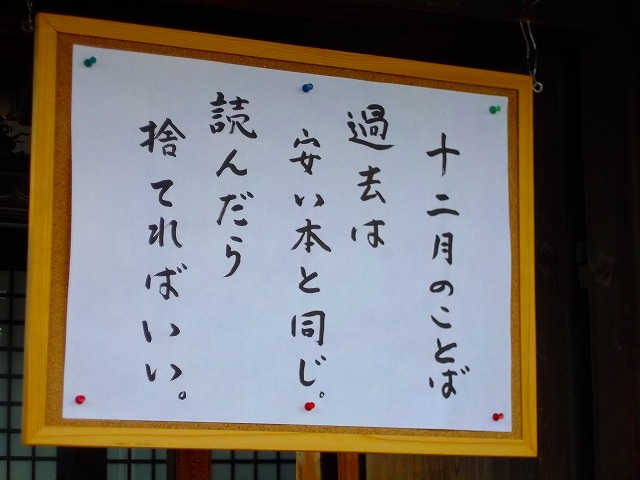 十二月のことば
過去は
安い本と同じ。
読んだら
捨てればいい。